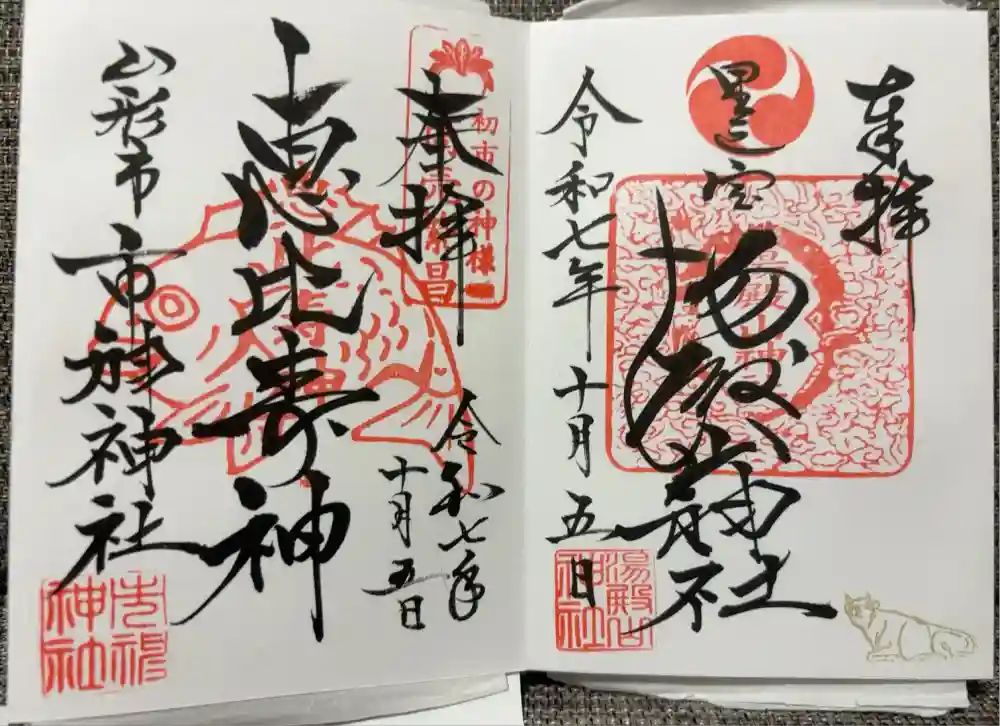 奉拝
里之宮
湯殿山神社
令和七年十月五日
湯殿山
神社
初市の神様
商売繁昌
奉拝
令和七年
十月五日
恵比寿神
山形市 市神神社
市神
神社